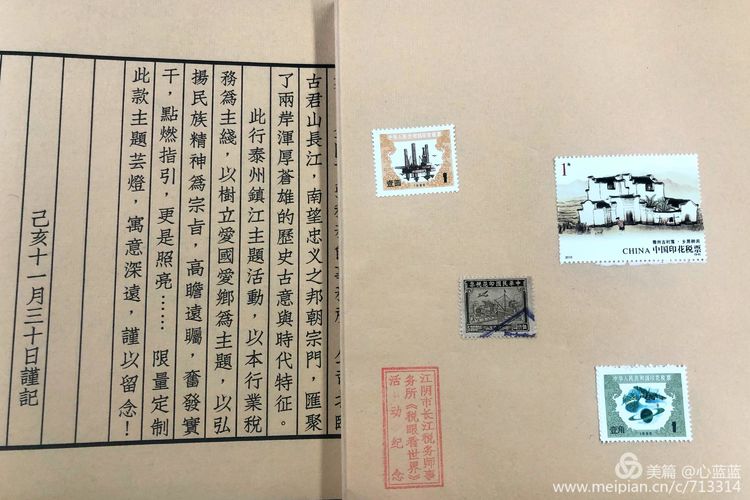 古君山長江，南望忠义之邦朝宗門，匯聚
了兩岸渾厚蒼雄的歷史古意與時代特征。
此行泰州鎮江主題活動，以本行業税
務爲主綫，以樹立愛國愛鄉爲主題，以弘
揚民族精神爲宗旨，高瞻遠矚，奮發實
干，點燃指引，更是照亮…… 限量定制
此款主題芸燈，寓意深遠，謹以留念！
己亥十一月三十日謹記
中华人民共和国印花税票
壹圆
1
1988
1元
CHINA 中国印花税票
票稅花印國民華中
江阴市长江税务师事
务所《税眼看世界》
活动纪念
中华人民共和国印花税票
壹角
1
1988
美篇 @心蓝蓝
www.meipian.cn/c/713314